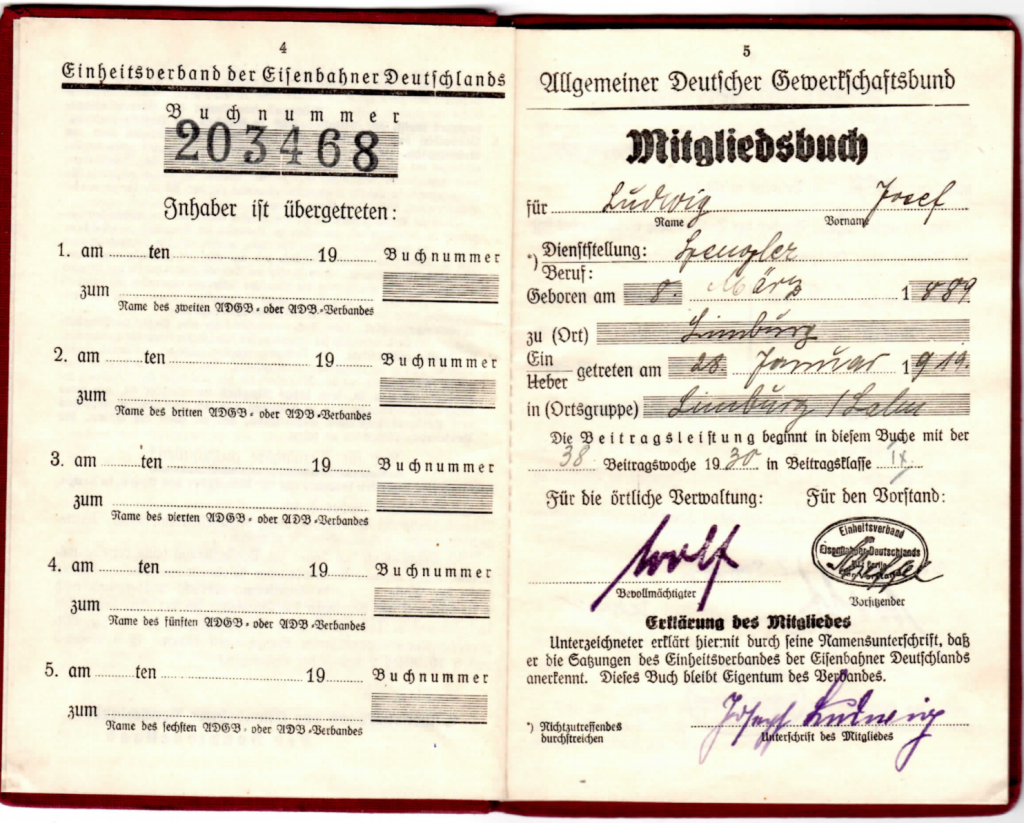 4
Einheitsverband der Eisenbahner Deutschlands
Buchnummer
203468
Inhaber ist übergetreten:
1. am ........ten ........ 19 ........ Buchnummer
zum
Name des zweiten ADGB- oder ADB-Verbandes
2. am ........ten ........ 19 ........ Buchnummer
zum
Name des dritten ADGB- oder ADB-Verbandes
3. am ........ten ........ 19 ........ Buchnummer
zum
Name des vierten ADGB- oder ADB-Verbandes
4. am ........ten ........ 19 ........ Buchnummer
zum
Name des fünften ADGB- oder ADB-Verbandes
5. am ........ten ........ 19 ........ Buchnummer
zum
Name des sechsten ADGB- oder ADB-Verbandes
5
Allgemeiner Deutscher Gewerkschaftsbund
Mitgliedsbuch
für Ludwig Josef
Name Vorname
*) Dienststellung: Spengler
Beruf:
Geboren am 8. März 1889
zu (Ort) Limburg
Ein
Ueber getreten am 28. Januar 1919.
in (Ortsgruppe) Limburg / Lahn
Die Beitragsleistung beginnt in diesem Buche mit der
38. Beitragswoche 1930 in Beitragsklasse IX
Für die örtliche Verwaltung: Für den Vorstand:
Wolf
Einheitsverband
der
Eisenbahner Deutschlands
Sitz Berlin
Der Vorstand
Bevollmächtigter Vorsitzender
Erklärung des Mitgliedes
Unterzeichneter erklärt hiermit durch seine Namensunterschrift, daß
er die Satzungen des Einheitsverbandes der Eisenbahner Deutschlands
anerkennt. Dieses Buch bleibt Eigentum des Verbandes.
Joseph Ludwig
Unterschrift des Mitgliedes
*) Nichtzutreffendes
durchstreichen